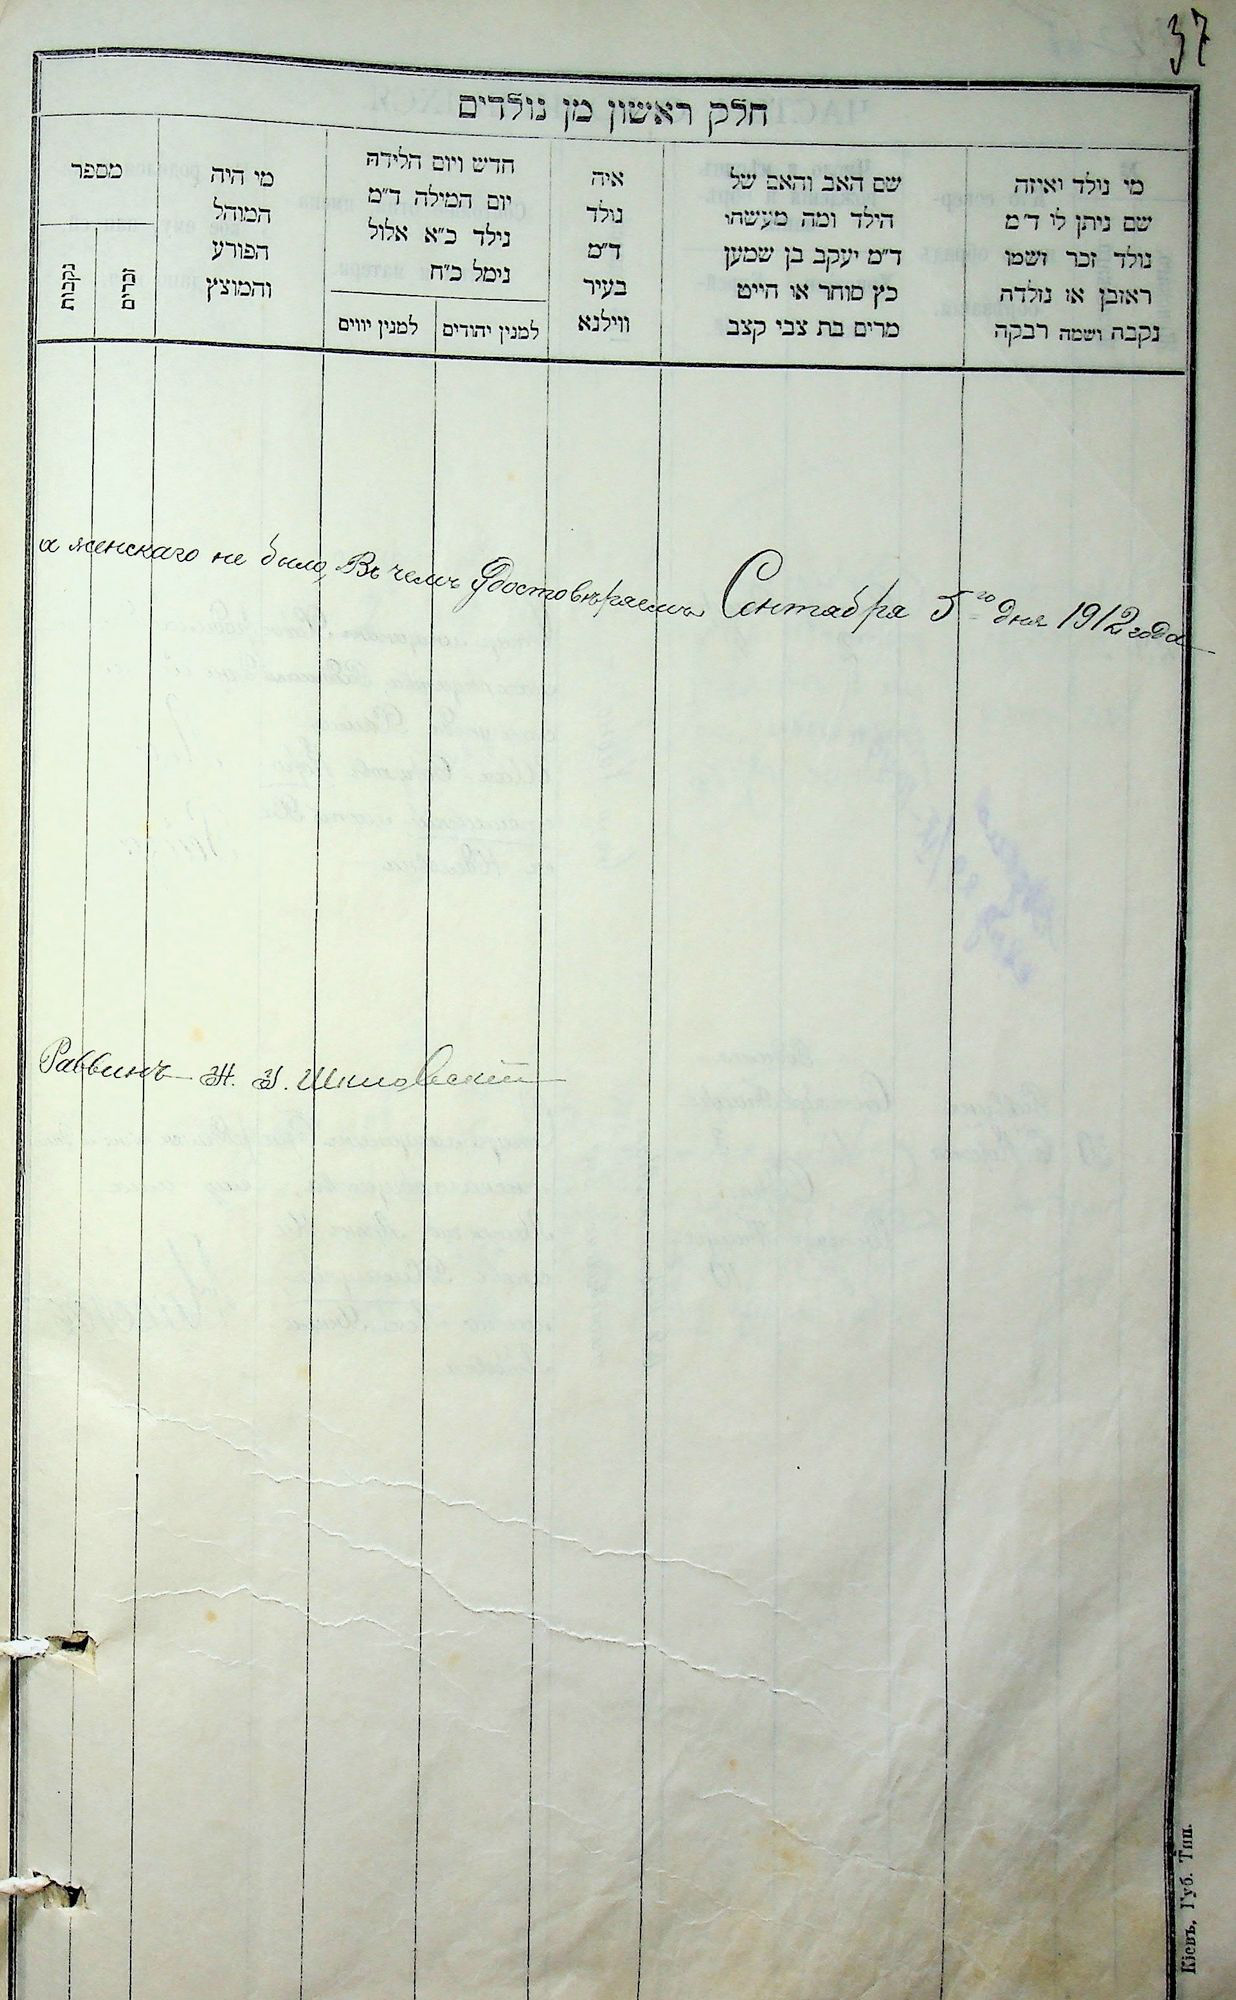 37
חלק ראשון מן נולדים
מי נולד ואיזה
שם ניתן לו ד״מ
נולד זכר ושמו
ראובן או נולדה
נקבה ושמה רבקה
שם האב והאם של
הילד ומה מעשהו
ד״מ יעקב בן שמעון
כץ סוחר או חייט
מרים בת צבי קצב
איה
נולד
ד״מ
בעיר
ווילנא
חדש ויום הלידה
יום המילה ד״מ
נילד כ״א אלול
נימל כ״ח
למנין יהודים
למנין יווים
מי היה
המוהל
הפורע
והמוצץ
מספר
זכרים
נקבות
а женскаго не было, Въ чемъ Удостовѣряемъ Сентября 5го дня 1912 года
Раввинъ Ж. У. Шкловскій
Кіевъ, Губ. Тип.